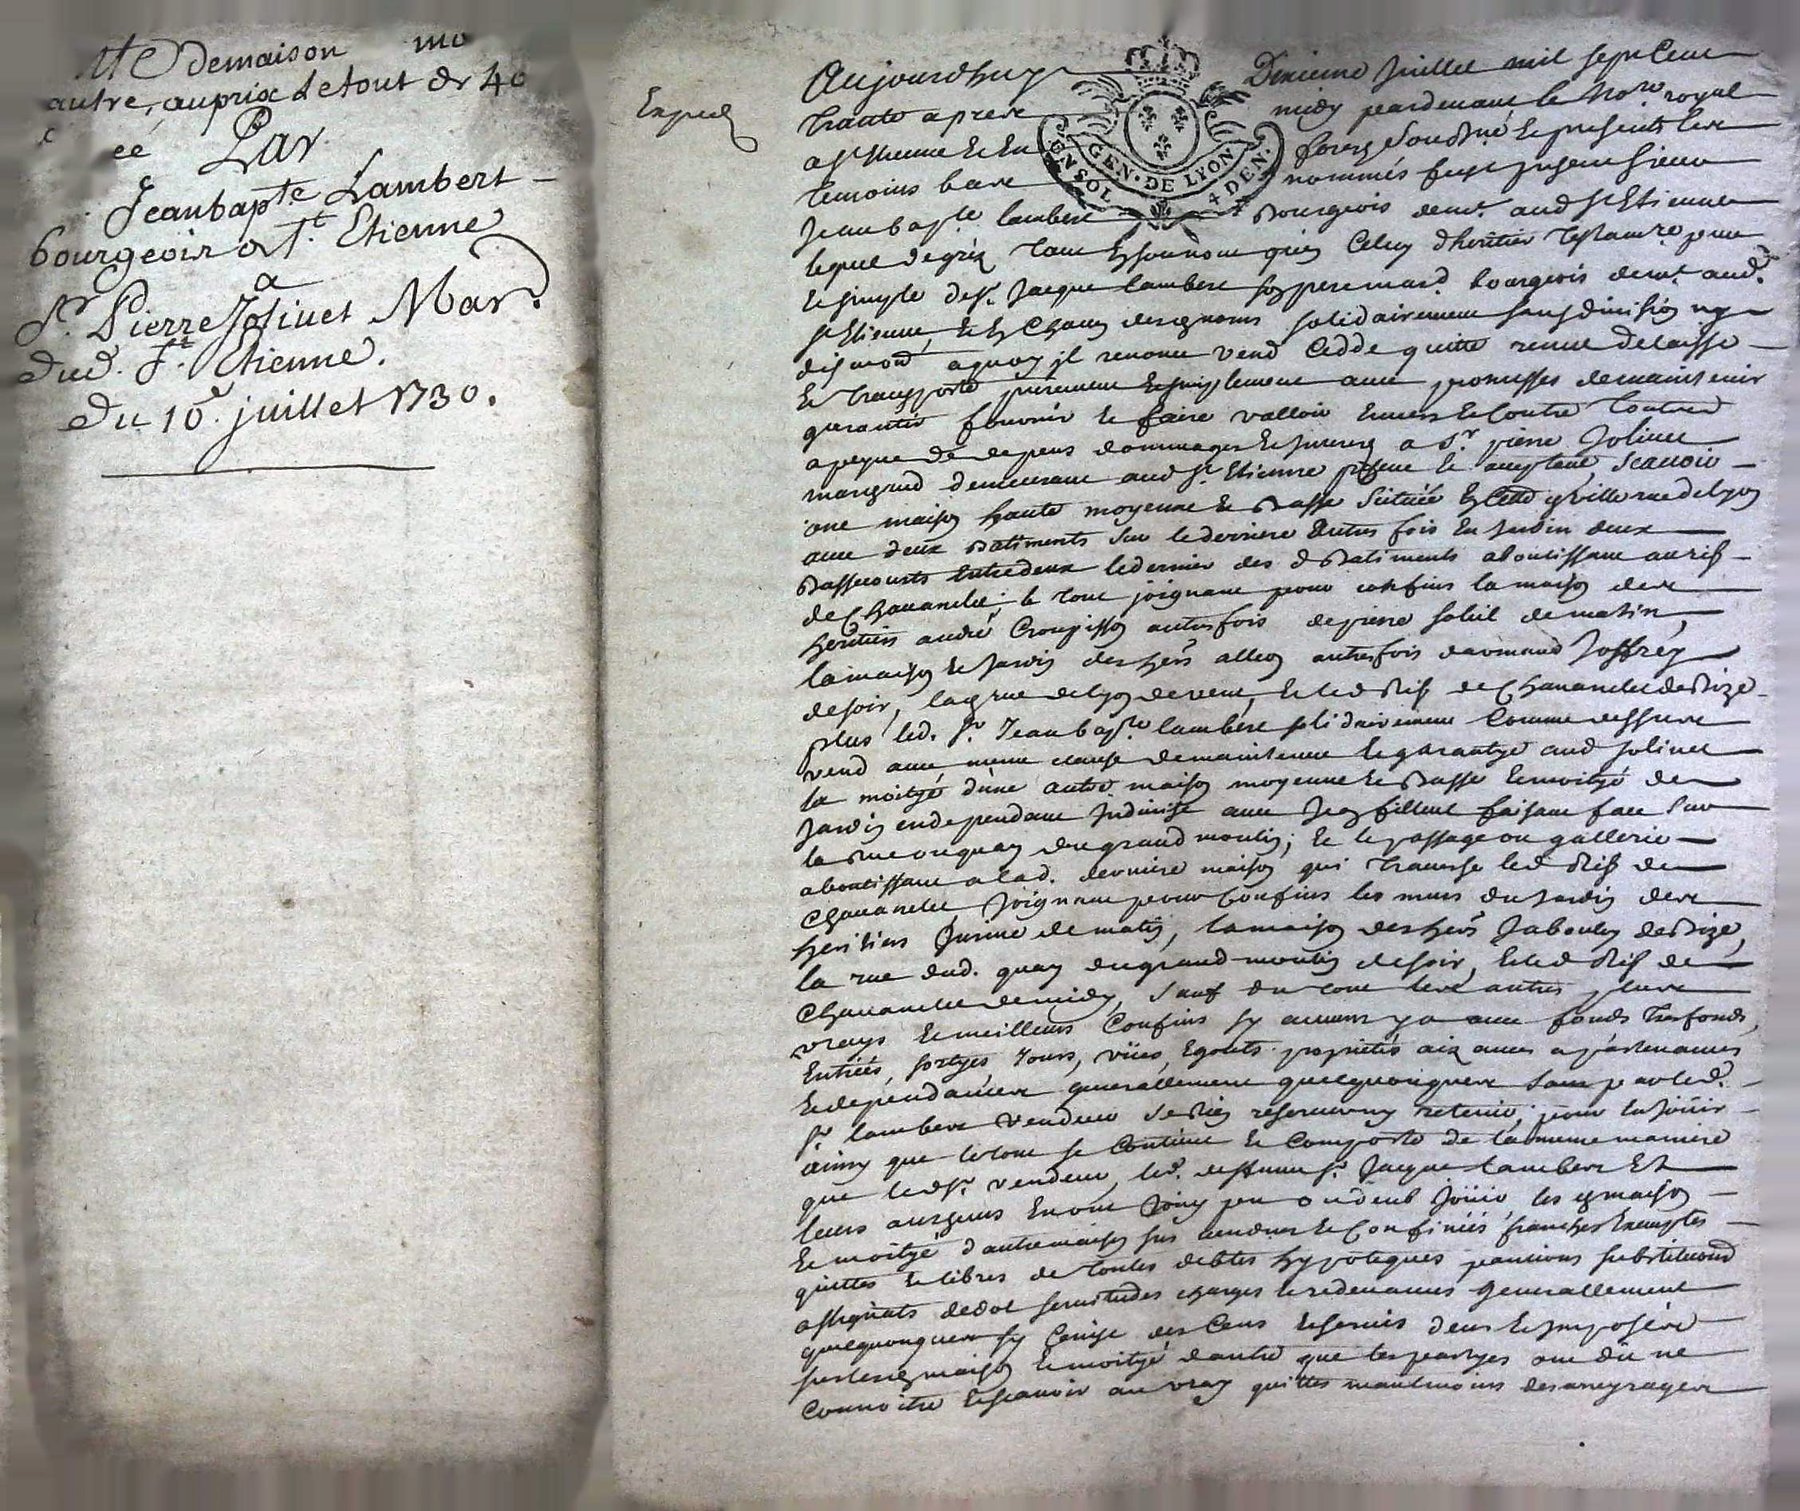 tte demaison mo
autre, auprix detout de 40
ée Par
Jeanbapte Lambert
bourgeoir a St. Etienne
a
Sr. Pierre Jolivet Mar.
dud. St. Etienne.
Du 10e. juillet 1730.
Exped
Aujourdhuy Dixieme Juillet mil sept Cent
trante apres midy pardevant le No.re royal
a St Etienne et En forez Soussigné et presents les
temoins bas nommés feust present Sieur
Jean bapte. lambert Bourgeois demt. aud St Etienne
GEN. DE LYON.
CONSOL 4 DEN.
lequel de gré tant En son nom qu'en Celuy d'heritier Testamre. pur
et simple de Sr. Jacque lambert son pere mard. bourgeois demt. aud.
St Etienne, et En Chacun des noms solidairement sans division ny
dismon aquoy il renonce vend Cedde quitte remet delaisse
et transporte purement et simplement avec promesses demaintenir
garantir fournir et faire valloir Envers et Contre toutes
apeyne de depens dommages et Interets a Sr. pierre Jolivet
marchand demeurant aud St. Etienne present et acceptant, Scavoir
une maison haute moyenne et Basse Scituée En Cette ville rue de Lyon
avec deux Batiments Sur le derriere Autres fois En Jardin deux
Bassecourts Entredeux le dernier des d Batiments aboutissant au rif
de Chavanelet; le tout joignant pour confins la maison des
heritiers andré Croupisson autresfois de pierre Soleil de matin,
la maison et Jardin des hers alleon autresfois darmand Joffrey
de soir, lad rue de Lyon de vent, et led Rif de Chavanelet de Bize
plus led. Sr. Jean bapte lambert solidairement Comme dessus
vend avec meme clause de maintenue et garantye aud Jolivet
la moityé d'une autre maison moyenne et Basse et moityé de
Jardin endependant Indivise avec Jean fillent faisant face Sur
la Rue ou quay du grand moulin; et le passage ou gallerie
aboutissant a lad. derniere maison qui traverse led Rif de
Chavanelet, Joignant pour Confins les murs du Jardin des
heritiers de matin, la maison des hers Jabouley de Bize,
la rue dud. quay du grand moulin de soir, et led Rif de
Chavanelet de midy, Sauf du tout les autres plus
vrays et meilleurs Confins sy aucuns y a avec fonds tresfonds,
Entrées, sortyes, Jours, vües, Egouts proprietés aizances apartenances
et dependances generallement quelquonques sans par led.
Sr. lambert vendeur se Rien reserver ny retenir, pour En Joüir
ainsy que letout se Contient et Comporte de la meme maniere
que led Sr. vendeur, led. deffunt Sr. Jacque lambert Et
leurs autheurs En ont Joüy peu ou deub Joüir les maison
et moityé d'autre maison sus vendues et Confinées franches Exemptes
quittes et libres de toutes debtes hypoteques pantions substitutions
assignats dedot servitudes charges et redevances Generallement
quelquonques sy Cen'est des Cens et servis deus et Imposés
sur lesd maison et moityé d'autre que les partyes ont dit ne
Connoitre Et scavoir au vray quittes neantmoins des arreyrages